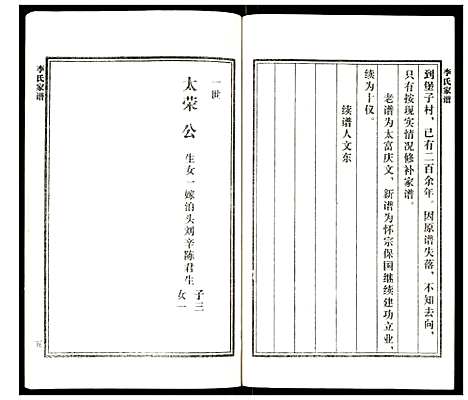 李氏家谱
到堡子村，已有二百余年。因原谱失落，不知去向，
只有按现实情况修补家谱。
老谱为太富庆文，新谱为怀宗保国继续建功立业，
续为十仅。
续谱人文东
李氏家谱
一世
太荣公
生女一嫁泊头刘辛陈君生
子三
女一
五